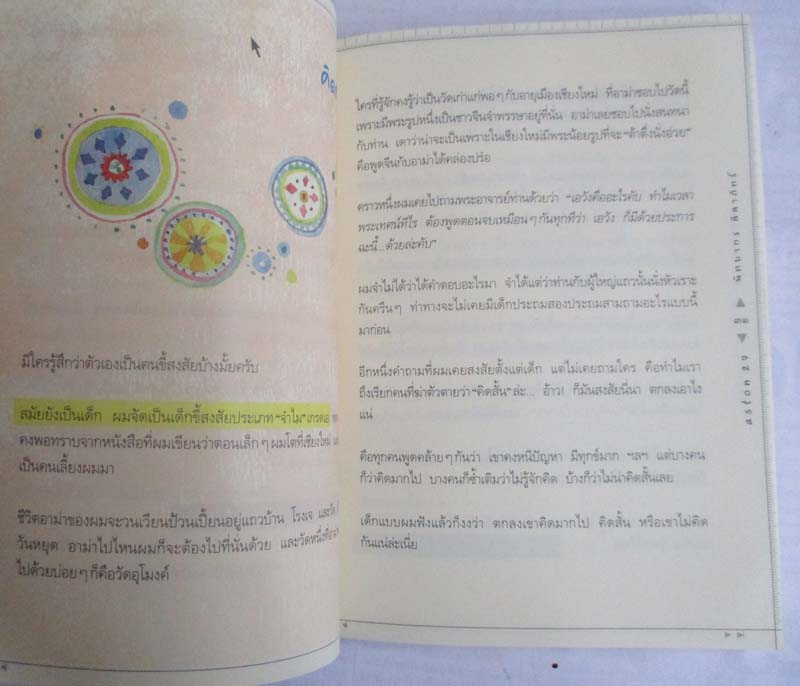 คิด
มีใครรู้สึกว่าตัวเองเป็นคนขี้สงสัยบ้างมั้ยครับ
สมัยยังเป็นเด็ก ผมจัดเป็นเด็กขี้สงสัยประเภท “จำไม” เกรดเอ
คงพอทราบจากหนังสือที่ผมเขียนว่าตอนเล็กๆ ผมโตที่เชียงใหม่
เป็นคนเลี้ยงผมมา
ชีวิตอาม่าของผมจะวนเวียนป้วนเปี้ยนอยู่แถวบ้าน โรงเจ และวัด
วันหยุด อาม่าไปไหนผมก็จะต้องไปที่นั่นด้วย และวัดหนึ่งที่อาม่า
ไปด้วยบ่อยๆ ก็คือวัดอุโมงค์
ใครที่รู้จักคงรู้ว่าเป็นวัดเก่าแก่พอๆ กับอายุเมืองเชียงใหม่ ที่อาม่าชอบไปวัดนี้
เพราะมีพระรูปหนึ่งเป็นชาวจีนจำพรรษาอยู่ที่นั่น อาม่าเลยชอบไปนั่งสนทนา
กับท่าน เดาว่าน่าจะเป็นเพราะในเชียงใหม่มีพระน้อยรูปที่จะ “ต้าตึ่งนั่งอ่วย”
คือพูดจีนกับอาม่าได้คล่องปร๋อ
คราวหนึ่งผมเคยไปถามพระอาจารย์ท่านด้วยว่า “เอวังคืออะไรคับ ทำไมเวลา
พระเทศน์ทีไร ต้องพูดตอนจบเหมือนๆ กันทุกทีว่า เอวัง ก็มีด้วยประการ
ฉะนี้...ด้วยล่ะคับ”
ผมจำไม่ได้ว่าได้คำตอบอะไรมา จำได้แต่ว่าท่านกับผู้ใหญ่แถวนั้นนั่งหัวเราะ
กันครืนๆ ท่าทางจะไม่เคยมีเด็กประถมสองประถมสามถามอะไรแบบนี้
มาก่อน
อีกหนึ่งคำถามที่ผมเคยสงสัยตั้งแต่เด็ก แต่ไม่เคยถามใคร คือทำไมเรา
ถึงเรียกคนที่ฆ่าตัวตายว่า “คิดสั้น” ล่ะ... อ้าว! ก็มันสงสัยนี่นา ตกลงเอาไง
แน่
คือทุกคนพูดคล้ายๆ กันว่า เขาคงหนีปัญหา มีทุกข์มาก ฯลฯ แต่บางคน
ก็ว่าคิดมากไป บางคนก็ซ้ำเติมว่าไม่รู้จักคิด บ้างก็ว่าไม่น่าคิดสั้นเลย
เด็กแบบผมฟังแล้วก็งงว่า ตกลงเขาคิดมากไป คิดสั้น หรือเขาไม่คิด
กันแน่ล่ะเนี่ย